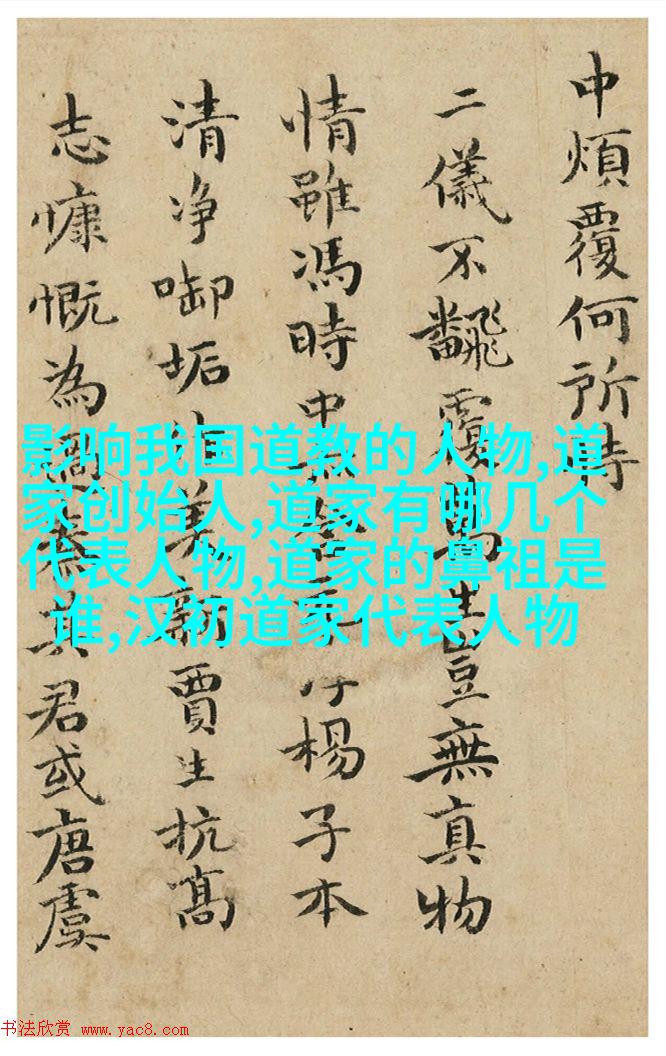 中煩覆何所恃
二儀不飜覆萬生豈無真物
情雖馮時中無楊子本
清净啣垢美新賈生抗髙
志慷慨為過秦其君或唐虞
影响我国道教的人物,道
家创始人,道家有哪几个
代表人物,道家的鼻祖是
谁,汉初道家代表人物
书法欣赏 www.yac8.com